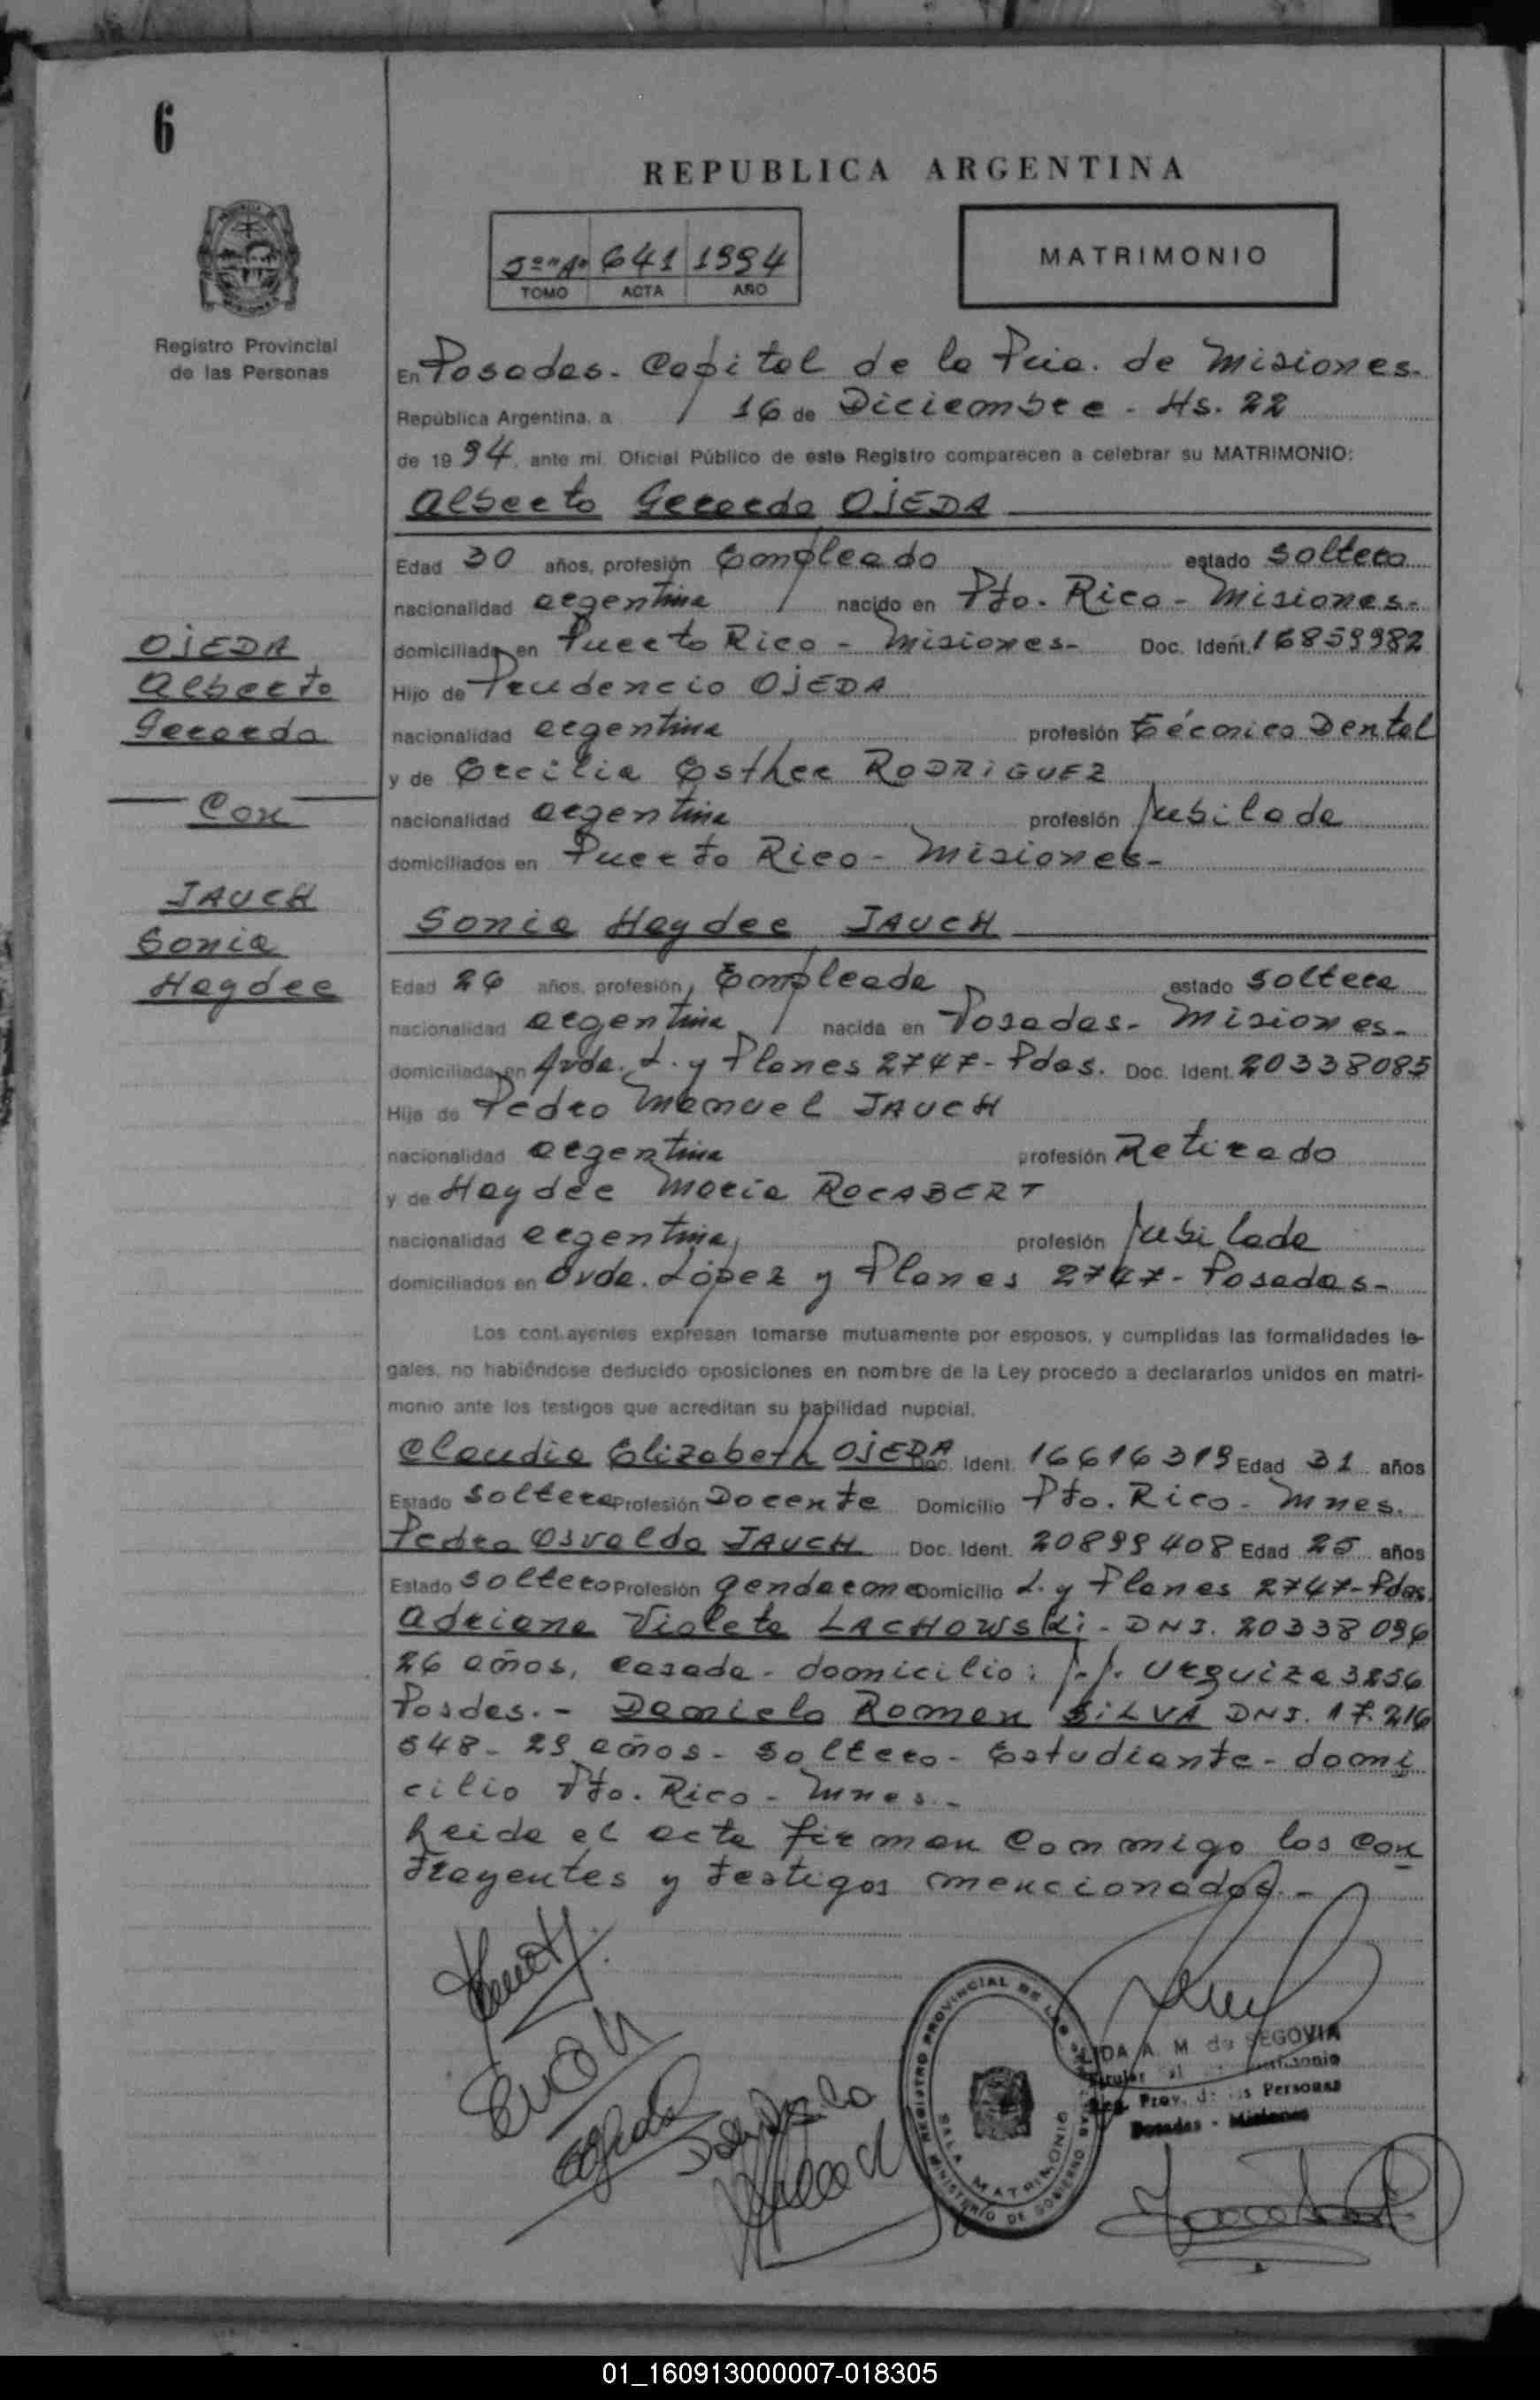 6
REPUBLICA ARGENTINA
641 1994
TOMO ACTA AÑO
MATRIMONIO
Registro Provincial
de las Personas
En Posadas - Capital de la Pcia. de Misiones-
República Argentina, a 16 de Diciembre - Hs. 22
de 1994, ante mi, Oficial Público de este Registro comparecen a celebrar su MATRIMONIO:
Alberto Gerardo OJEDA
Edad 30 años, profesión Empleado estado soltero
nacionalidad argentina nacido en Pto. Rico - Misiones-
domiciliado en Puerto Rico - Misiones- Doc. Ident. 16859982
Hijo de Prudencio OJEDA
nacionalidad argentina profesión Técnico Dental
y de Cecilia Esther RODRIGUEZ
nacionalidad argentina profesión Jubilada
domiciliados en Puerto Rico - Misiones-
OJEDA
Alberto
Gerardo
Con
JAUCH
Sonia
Haydee
Sonia Haydee JAUCH
Edad 26 años, profesión, Empleada estado soltera
nacionalidad argentina nacida en Posadas- Misiones-
domiciliada en Avda. L. y Planes 2747- Pdas. Doc. Ident. 20338085
Hija de Pedro Manuel JAUCH
nacionalidad argentina profesión Retirado
y de Haydee Maria ROCABERT
nacionalidad argentina profesión Jubilada
domiciliados en Avda. López y Planes 2747- Posadas-
Los contrayentes expresan tomarse mutuamente por esposos, y cumplidas las formalidades le-
gales, no habiéndose deducido oposiciones en nombre de la Ley procedo a declararlos unidos en matri-
monio ante los testigos que acreditan su habilidad nupcial.
Claudia Elizabeth OJEDA Doc. Ident. 16616319 Edad 31 años
Estado soltera Profesión Docente Domicilio Pto. Rico - Mnes.
Pedro Osvaldo JAUCH Doc. Ident. 20899408 Edad 25 años
Estado soltero Profesión gendarme Domicilio L. y Planes 2747-Pdas.
Adriana Violeta LACHOWSKi - DNI. 20338096
26 años, casada - domicilio: J.J. Urquiza 3856
Posdas. - Daniel Roman SiLVA DNI. 17.216
548 - 29 años - soltero - Estudiante - domi
cilio Pto. Rico - Mnes. -
Leida el acta firman conmigo los con
trayentes y testigos mencionados. -
REGISTRO PROVINCIAL DE LAS PERSONAS
SALA MATRIMONIO
MINISTERIO DE GOBIERNO
A. M. de SEGOVIA
Reg. Prov. de las Personas
Posadas - Misiones
01_160913000007-018305